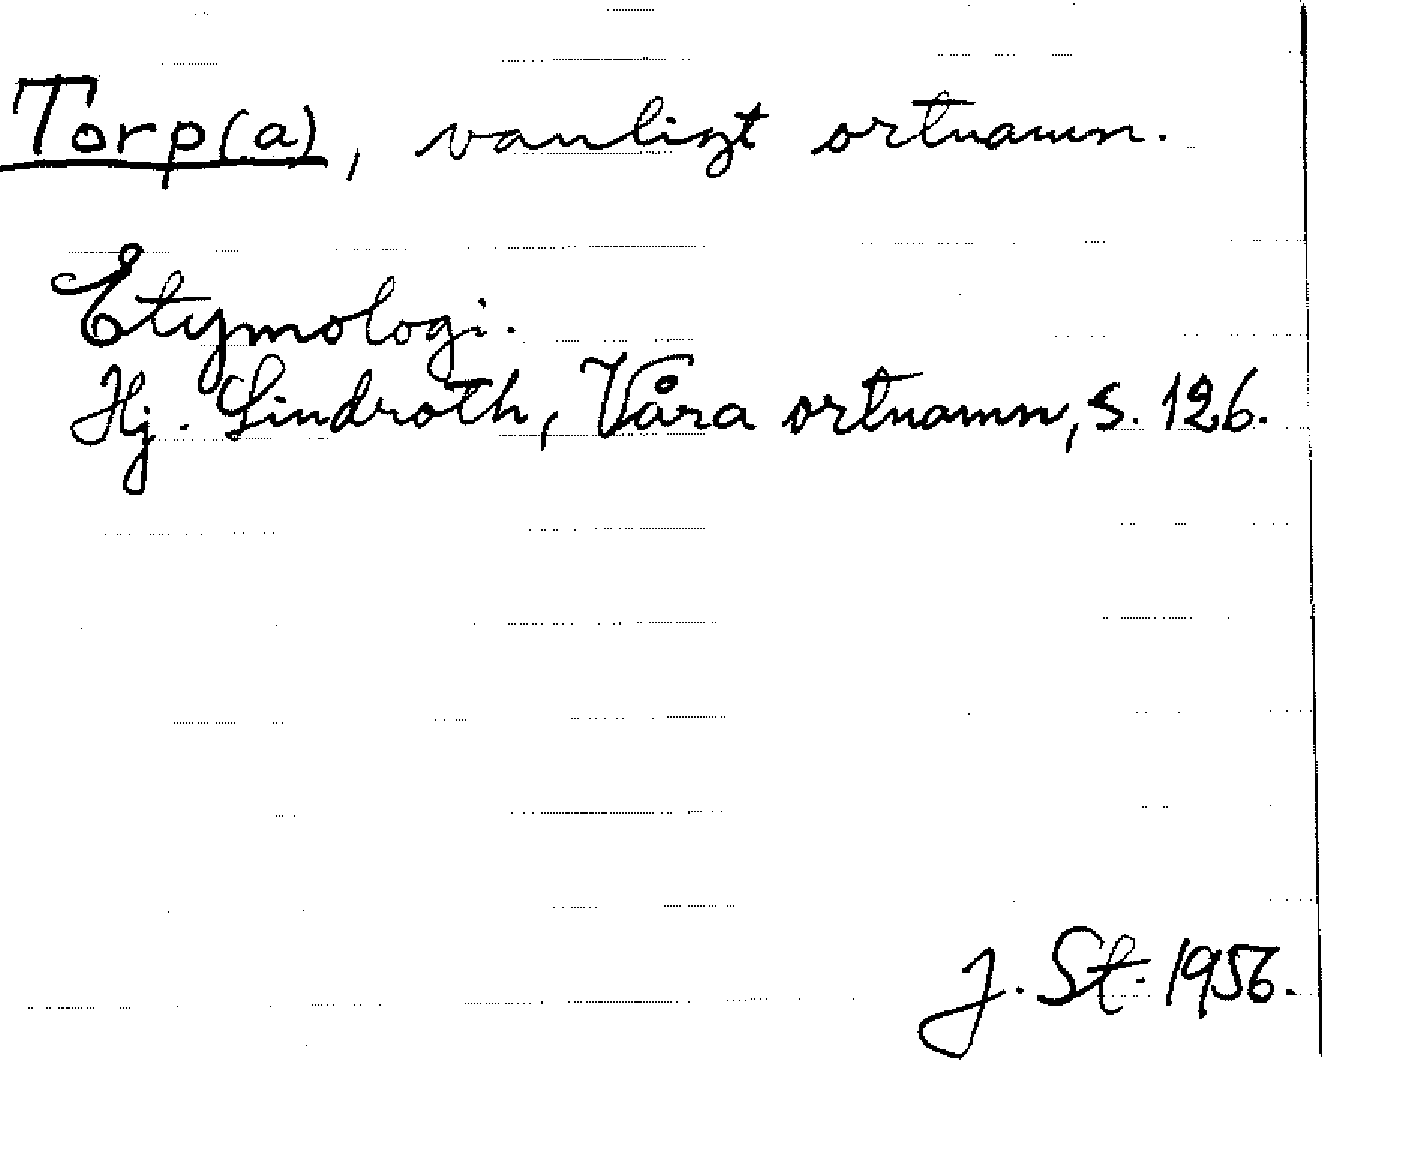 Torp(a), vanligt ortnamn.
Etymologi.
Hj. Lindroth, Våra ortnamn, s. 126.
J. St. 1956.